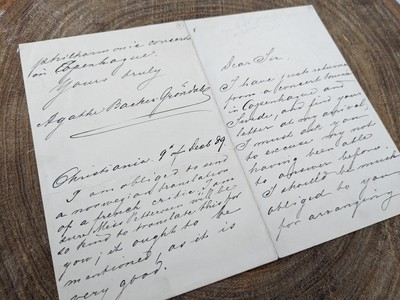 Dear Sir.
I have just returned
from a concert tourn
in Copenhagen and
Sweden, and find your
letter at my arrival,
I must beg you
to excuse my not
having been able
to answer before.
I should be much
obliged to you
for arranging
philharmonic concert
in Copenhagen.
Yours truly
Agathe Backer Gröndahl
Christiania 9 of Decb 89
I am obliged to send
a norwegian translation
of a french critic; I am
sure Miss Petterson will be
so kind to translate this for
you; it ought to be
mentioned, as it is
very good!